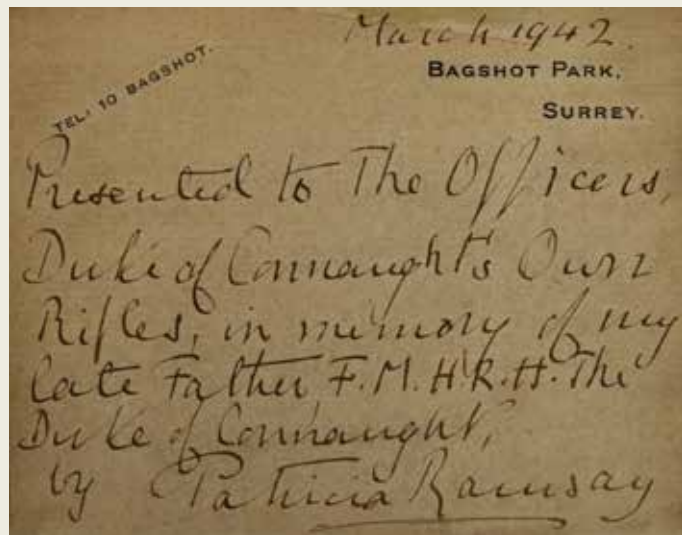 March 1942.
TEL: 10 BAGSHOT.
BAGSHOT PARK,
SURREY.
Presented to The Officers,
Duke of Connaught's Own
Rifles, in memory of my
late Father F.M.H.R.H. The
Duke of Connaught,
by Patricia Ramsay